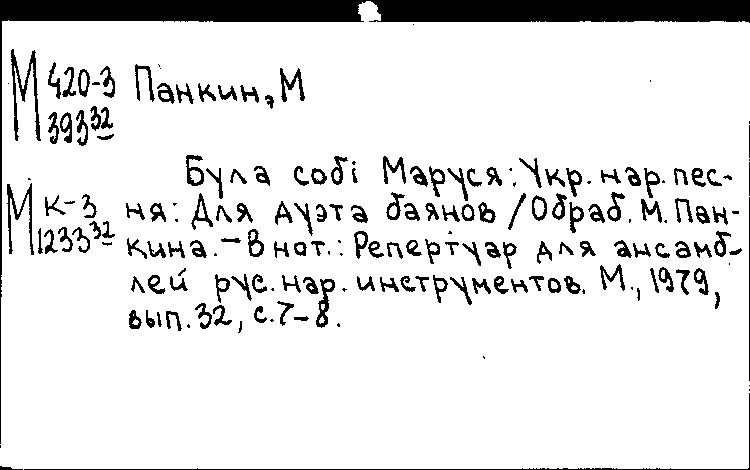 М 420-3 Панкин, М
393 32
Була собі Маруся: Укр. нар. пес-
М К-3 ня: Для дуэта баянов / Обраб. М. Пан-
1233 32 кина. - В нот.: Репертуар для ансамб-
лей рус. нар. инструментов. М., 1979,
вып. 32, с. 7-8.